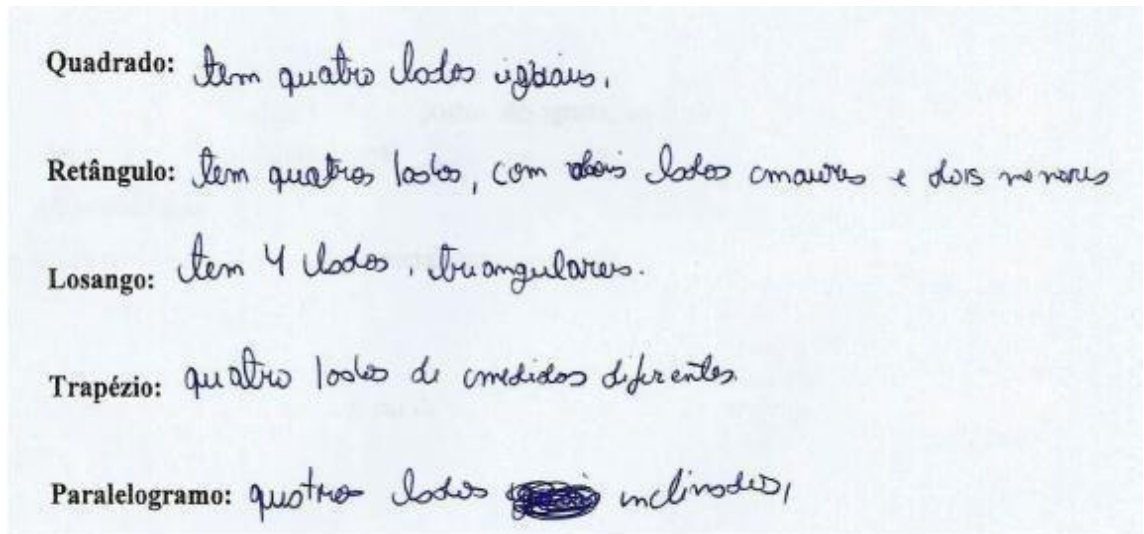 Quadrado: tem quatro lados iguais.
Retângulo: tem quatros lados, com dois lados maiores e dois menores
Losango: tem 4 lados, triangulares.
Trapézio: quatro lados de medidas diferentes
Paralelogramo: quatros lados inclinados,